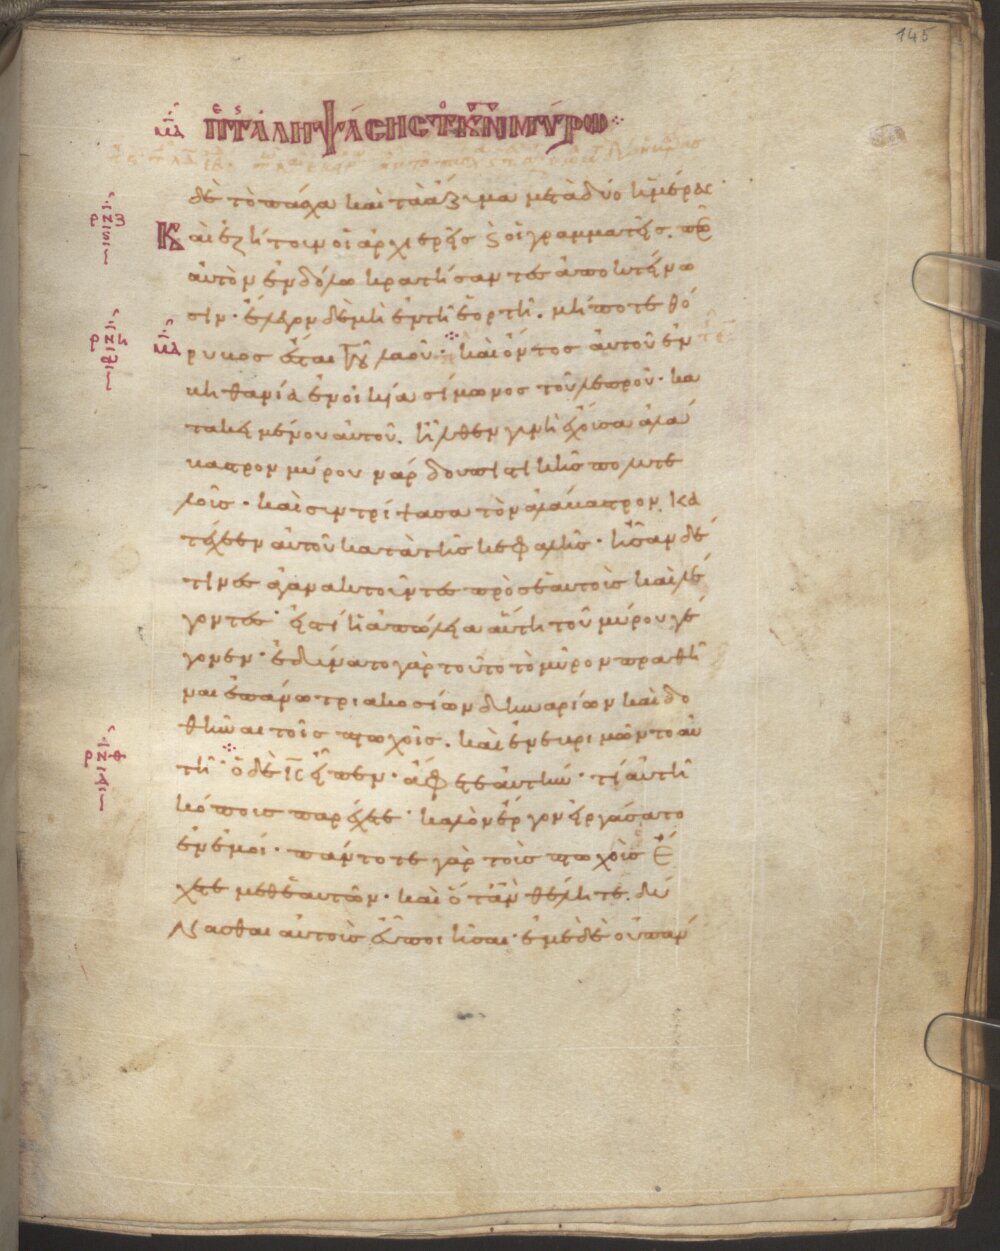 145
μδ πτ αληψάσης τκν μύρω
δὲ τὸ πάσχα καὶ τὰ ἄζυμα μετὰ δύο ἡμέρας
Καὶ ἐζήτουν οἱ ἀρχιερεῖς ϗ οἱ γραμματεῖς. πῶς
αὐτὸν ἐν δόλω κρατήσαντες ἀποκτείνω
σιν· ἔλεγον δὲ μὴ ἐν τῆ ἑορτῆ. μήποτε θό
ρυβος ἔσται τοῦ λαοῦ· καὶ ὄντος αὐτοῦ ἐν
βηθανία ἐν οἰκία σίμωνος τοῦ λεπροῦ· κα
τακειμένου αὐτοῦ. ἦλθεν γυνὴ ἔχουσα ἀλά
βαστρον μύρου νάρδου πιστικῆς πολυτε
λοῦς· καὶ συντρίψασα τὸν ἀλάβαστρον. κα
τέχεεν αὐτοῦ κατὰ τῆς κεφαλῆς· ἦσαν δέ
τινες ἀγανακτοῦντες πρὸς ἑαυτοὺς καὶ λέ
γοντες· εἰς τί ἡ ἀπώλεια αὕτη τοῦ μύρου γέ
γονεν· ἐδύνατο γὰρ τοῦτο τὸ μῦρον πραθῆ
ναι ἐπάνω τριακοσίων δηναρίων καὶ δο
θῆναι τοῖς πτωχοῖς. καὶ ἐνεβριμῶντο αὐ
τῆ· ὁ δὲ ις εἶπεν· ἄφετε αὐτήν· τί αὐτῆ
κόπους παρέχετε· καλὸν ἔργον εἰργάσατο
ἐν ἐμοί· πάντοτε γὰρ τοὺς πτωχοὺς ἔ
χετε μεθ' ἑαυτῶν· καὶ ὅταν θέλητε. δύ
νασθαι αὐτοὺς εὖ ποιῆσαι· ἐμὲ δὲ οὐ πάν